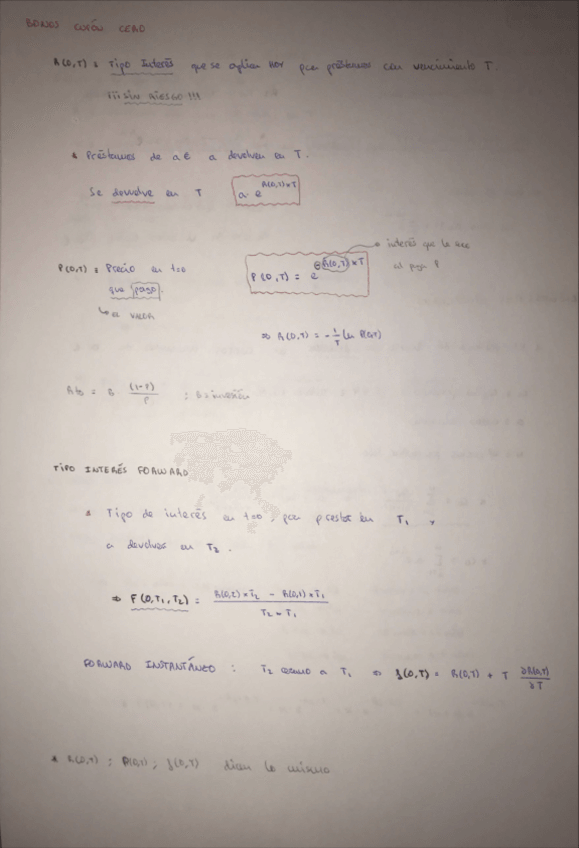 BONOS CUPÓN CERO
R(0,T) : Tipo Interés que se aplica HOY para préstamos con vencimiento T.
SIN RIESGO !!!
* Préstamos de a € a devolver en T.
Se devuelve en T a · e^{R(0,T)×T}
P(0,T) : Precio en t=0 P(0,T) = e^{-R(0,T)×T} → interés que le
que pago. P
↳ VALOR
⇒ R(0,T) = - 1/T Ln P(0,T)
= B (1-P)/P ; B = inversión
TIPO INTERÉS FORWARD
* Tipo de interés en t=0, para prestar en T₁ y
a devolver en T₂.
⇒ F(0,T₁,T₂) = (R(0,2)×T₂ - R(0,1)×T₁) / (T₂ - T₁)
FORWARD INSTANTÁNEO : T₂ cercano a T₁ ⇒ f(0,T) = R(0,T) + T ∂R(0,T)/∂T
* R(0,T) ; P(0,T) ; f(0,T) dicen lo mismo